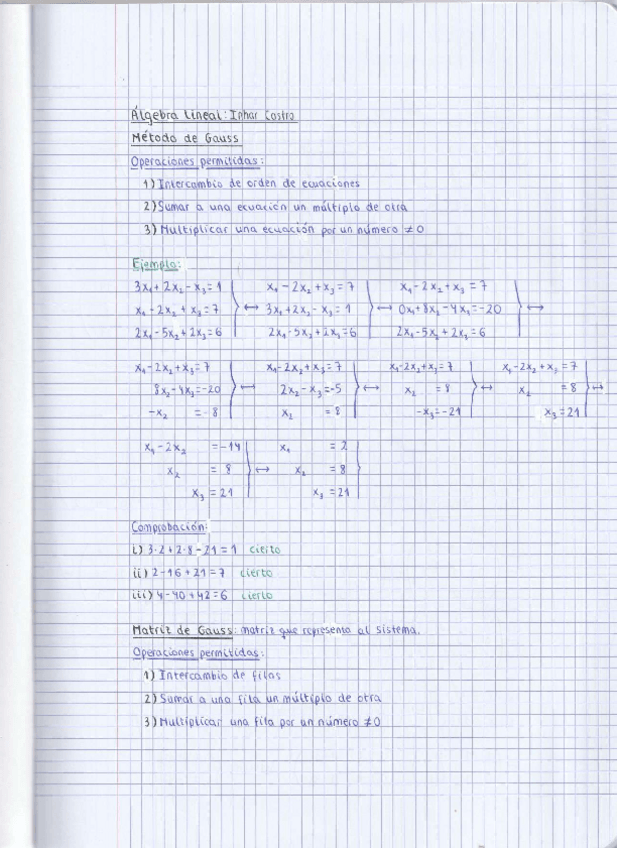 Álgebra Lineal: Inhar Castro
Método de Gauss
Operaciones permitidas:
1) Intercambio de orden de ecuaciones
2) Sumar a una ecuación un múltiplo de otra
3) Multiplicar una ecuación por un número ≠0
Ejemplo:
3x₁+2x₂-x₃=1 x₁-2x₂+x₃=7 x₁-2x₂+x₃=7
x₁-2x₂+x₃=7 ↔ 3x₁+2x₂-x₃=1 ↔ 0x₁+8x₂-4x₃=-20 ↔
2x₁-5x₂+2x₃=6 2x₁-5x₂+2x₃=6 2x₁-5x₂+2x₃=6
x₁-2x₂+x₃=7 x₁-2x₂+x₃=7 x₁-2x₂+x₃=7 x₁-2x₂+x₃=7
8x₂-4x₃=-20 ↔ 2x₂-x₃=-5 ↔ x₂ =8 ↔ x₂ =8 ↔
-x₂ =-8 x₂ =8 -x₃=-21 x₃=21
x₁-2x₂ =-14 x₁ =2
x₂ =8 ↔ x₂ =8
x₃=21 x₃=21
Comprobación:
i) 3·2+2·8-21=1 cierto
ii) 2-16+21=7 cierto
iii) 4-40+42=6 cierto
Matriz de Gauss: matriz que representa al sistema.
Operaciones permitidas:
1) Intercambio de filas
2) Sumar a una fila un múltiplo de otra
3) Multiplicar una fila por un número ≠0